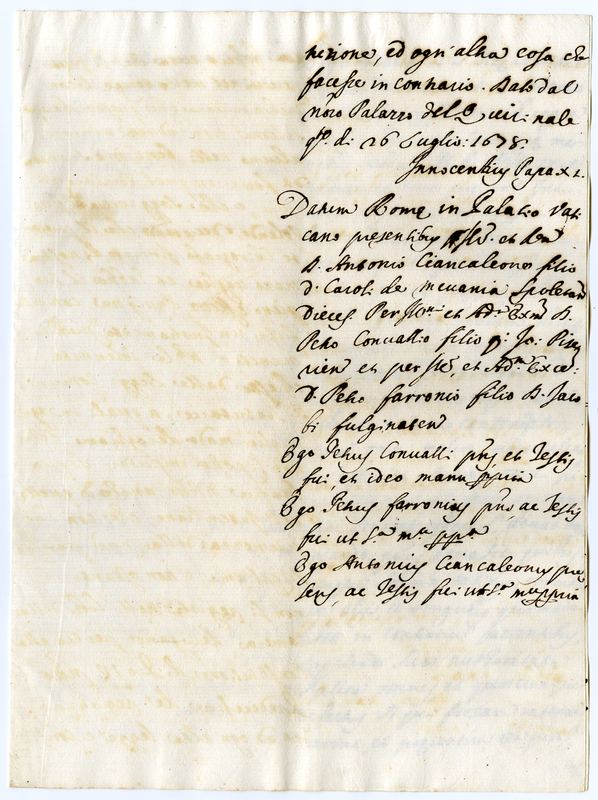 nexione, ed ogn'altra cosa che
facesse in contrario. Dato dal
nro Palazzo del Quirinale
di 26 Luglio: 1678.
Innocentius Papa XI.
Datum Rome in Palatio Vati
cano presentibus et
D. Antonio Ciancaleone filio
D. Caroli de Mevania Spoletan
Dieces. Per et Adm Exm D.
Petro Convallio filio q: Jo: 
et per et Adm Exce:
D. Petro farronio filio D. Jaco
bi fulginaten
Ego Petrus Convalli pns et Testis
fui, et ideo manu ppria
Ego Petrus farronius pns ac Testis
fui ut sa ma ppa
Ego Antonius Ciancaleonus pre
sens, ac Testis fui ut sa mu ppria